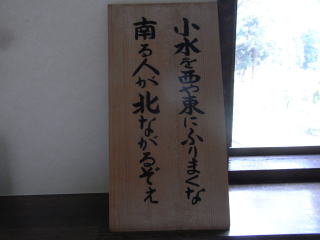 小水を西や東にふりまくな
南る人が北ながるぞえ